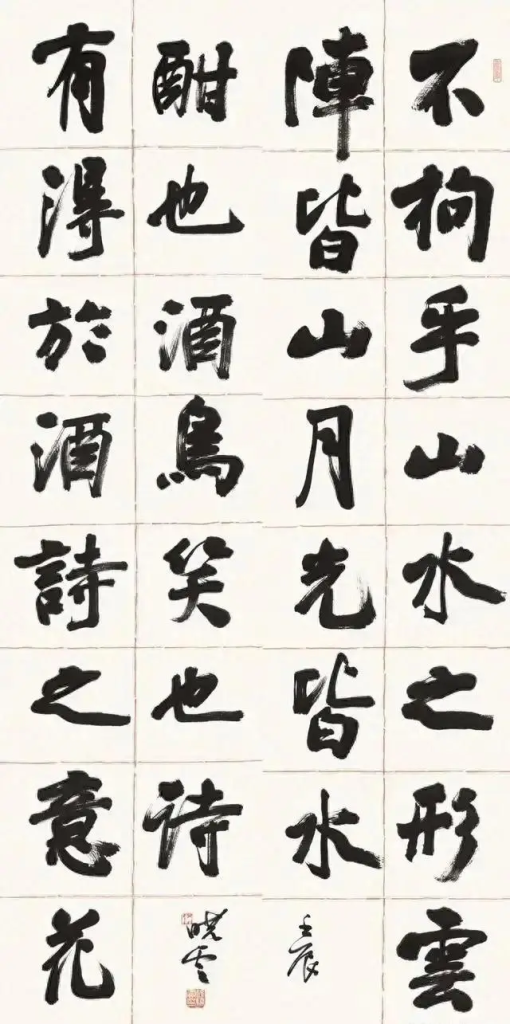 不拘乎山水之形雲
陣皆山月光皆水
壬辰
有得於酒詩之意花
酣也酒鳥笑也诗
曉雲